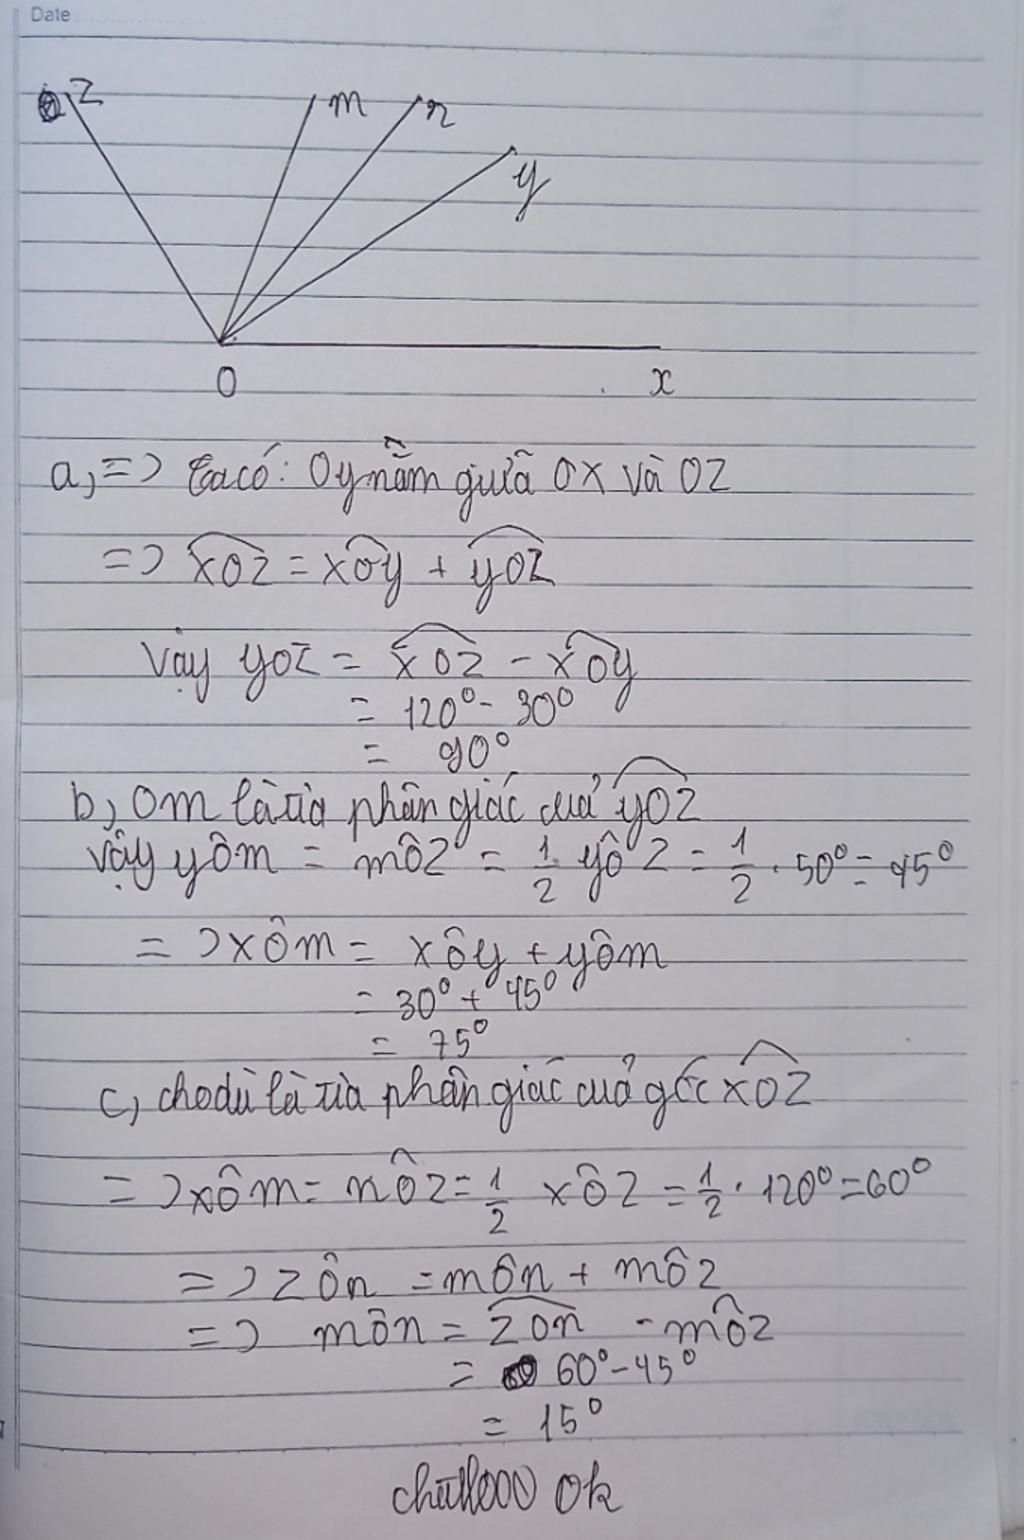 Date
z m n y
O x
a, => Ta có: Oy nằm giữa OX và OZ
=> xOz = xOy + yOz
Vậy yOz = xOz - xOy
= 120° - 30°
= 90°
b, Om là tia phân giác của yOz
Vậy yÔm = mÔz = 1/2 yÔz = 1/2 . 50° = 45°
=> xÔm = xÔy + yÔm
= 30° + 45°
= 75°
c, là tia phân giác cuả góc xOz
=> xÔm = nÔz = 1/2 xÔz = 1/2 . 120° = 60°
=> zÔn = mÔn + mÔz
=> mÔn = zOn - mÔz
= 60° - 45°
= 15°
ok